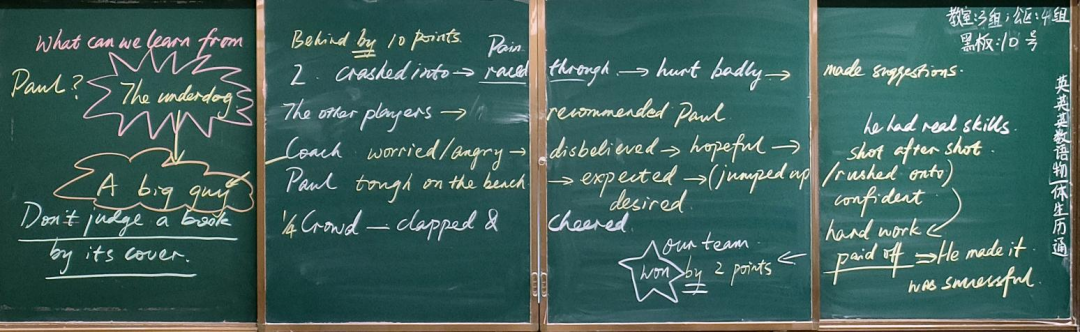 What can we learn from
Paul?
The underdog
A big guy
Don't judge a book
by its cover.
Behind by 10 points.
Pain
2. crashed into → raced through → hurt badly → made suggestions.
The other players → recommended Paul
Coach worried/angry → disbelieved → hopeful →
Paul tough on the bench → expected → (jumped up /rushed onto)
desired
he had real skills.
shot after shot.
confident
¼ Crowd — clapped & cheered
our team
won by 2 points ←
hard work
paid off ⇒ He made it
was successful.
教室:3组;公区:4组
黑板:10号
英英英数语物体生历通